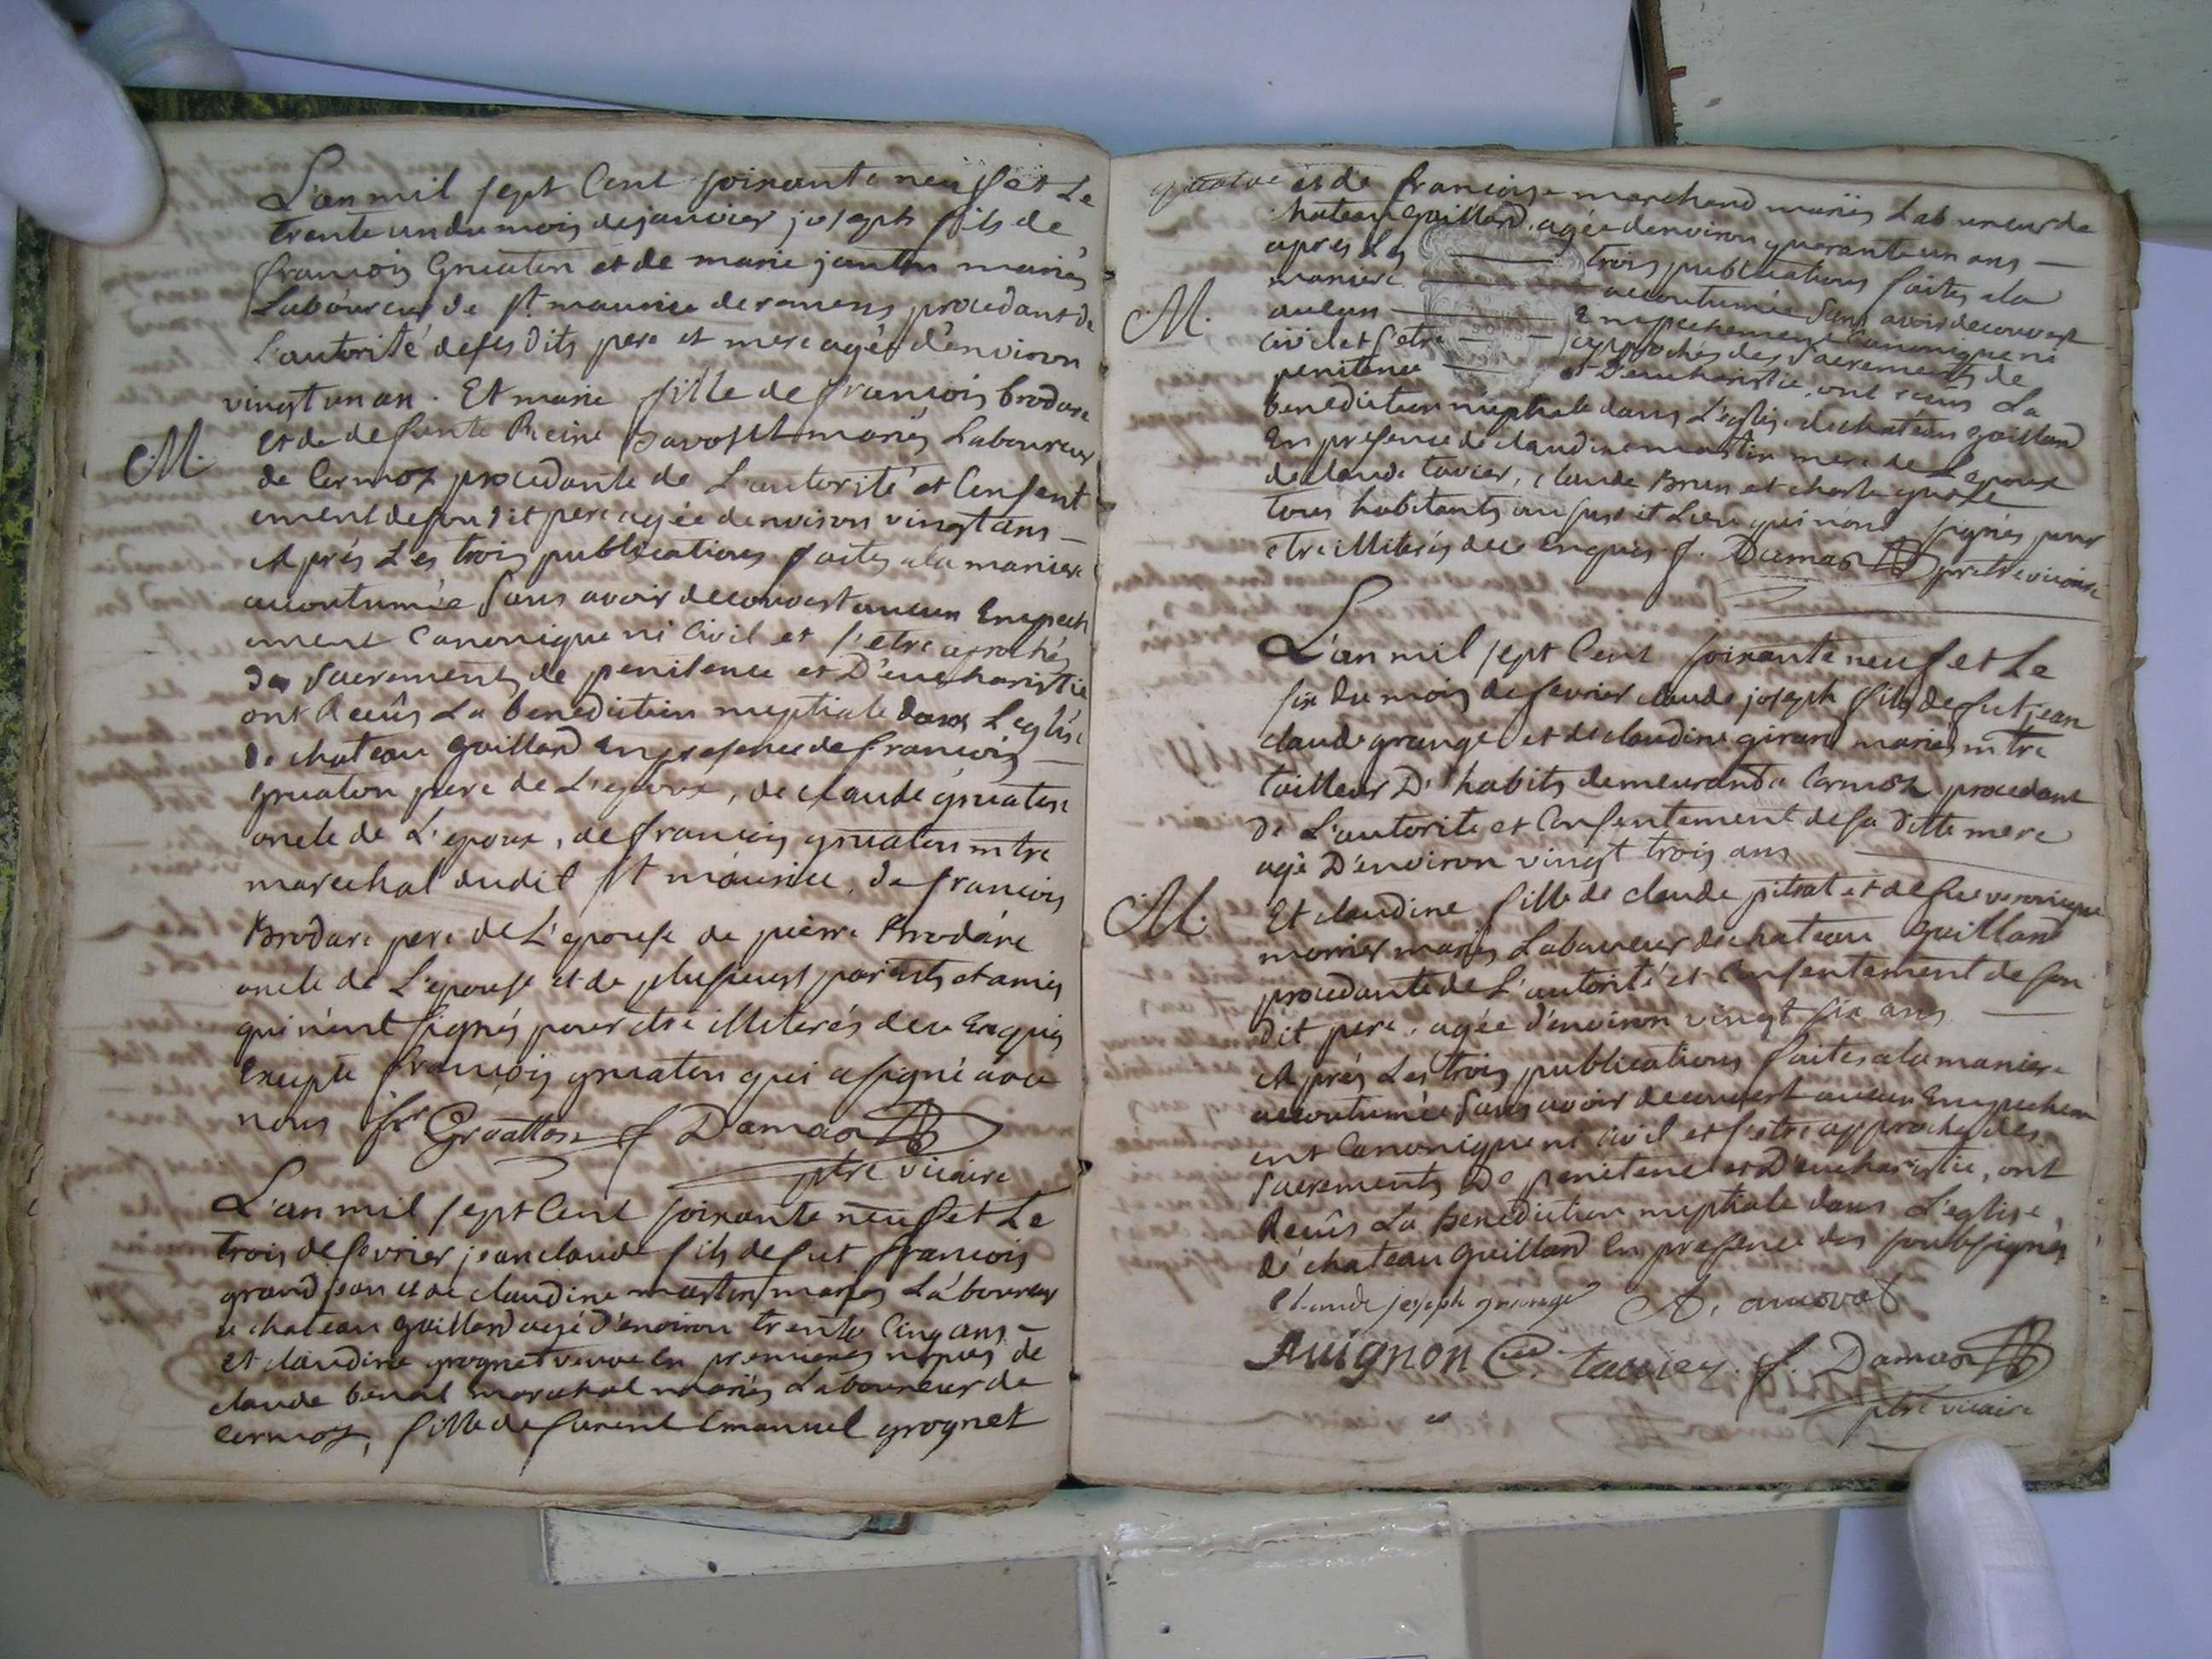 L'an mil sept Cent soixante neuf et Le
trente un du mois de janvier joseph fils de
francois Gruaton et de marie jantin mariés
Laboureur de st maurice de remens procedant de
l'autorité de ses dits pere et mere agée d'environ
vingt un an. Et marie fille de francois brodare
M. et de defunte Reine Savost mariés Laboureur
de Cormoz procedante de L'autorité et Consent
ement de son dit pere agée denviron vingt ans
Aprés Les trois publications faites a la maniere
acoutumée sans avoir decouvert aucun Empech
ement Canonique ni Civil et s'etre aprochés
des sacrements de penitence et D'eucharistie
ont Recûs La benediction nuptiale dans L'eglise
de chateau gaillard En presence de francois
gruaton pere de L'epoux, de claude gruaton
oncle de L'epoux, de francois gruaton mtre
marechal dudit st maurice, de francois
Brodare pere de L'epouse de pierre Brodare
oncle de L'epouse et de plusieurs parents et amis
qui n'ont signés pour etre illiterés de ce Enquis
Excepte francois gruaton qui a signé avec
nous fr Gruatton f Damas
ptre vicaire
L'an mil sept Cent soixante neuf et Le
trois de fevrier jean claude fils de fut francois
grand jean et de claudine martin mariés Laboureur
a chateau gaillard agé d'environ trente Cinq ans
et claudine grognet veuve en premieres nopces de
claude benat marechal mariés Laboureur de
Cormoz, fille de furent Emanuel grognet
et de francoise marchand mariés Laboureur de
chateau gaillard. agée denviron quarante un ans
apres Les trois publications faites a la
maniere acoutumée sans avoir decouvert
M. aucun Empechement Canonique ni
civil et s'etre approchés des sacrements de
penitence et D'eucharistie, ont recus La
benediction nuptiale dans L'eglise de chateau gaillard
En presence de claudine martin mere de L'epoux
de claude tavier, claude Brun et charle
tous habitants au susdit Lieu qui n'ont signés pour
etre illiterés de ce Enquis f. Damas pretre vicaire
L'an mil sept Cent soixante neuf et Le
six du mois de fevrier claude joseph fils de fut jean
claude grange et de claudine girard mariés mtre
tailleur D'habits demeurant a Cormoz procedant
de L'autorite et Consentement de sa ditte mere
agé D'environ vingt trois ans
M. Et claudine fille de claude pitrat et de fue veronique
morier mariés Laboureur de chateau gaillard
procedante de L'autorité et Consentement de son
dit pere. agée d'environ vingt six ans
Aprés Les trois publications faites a la maniere
accoutumée sans avoir decouvert aucun Empechem
ent Canonique ni civil et s'etre approchés des
sacrements De penitence et D'eucharistie, ont
Recûs La Benediction nuptiale dans L'eglise,
de chateau gaillard En presence des soubsignés
claude joseph grange
Auignon C. tauier. f. Damas
ptre vicaire